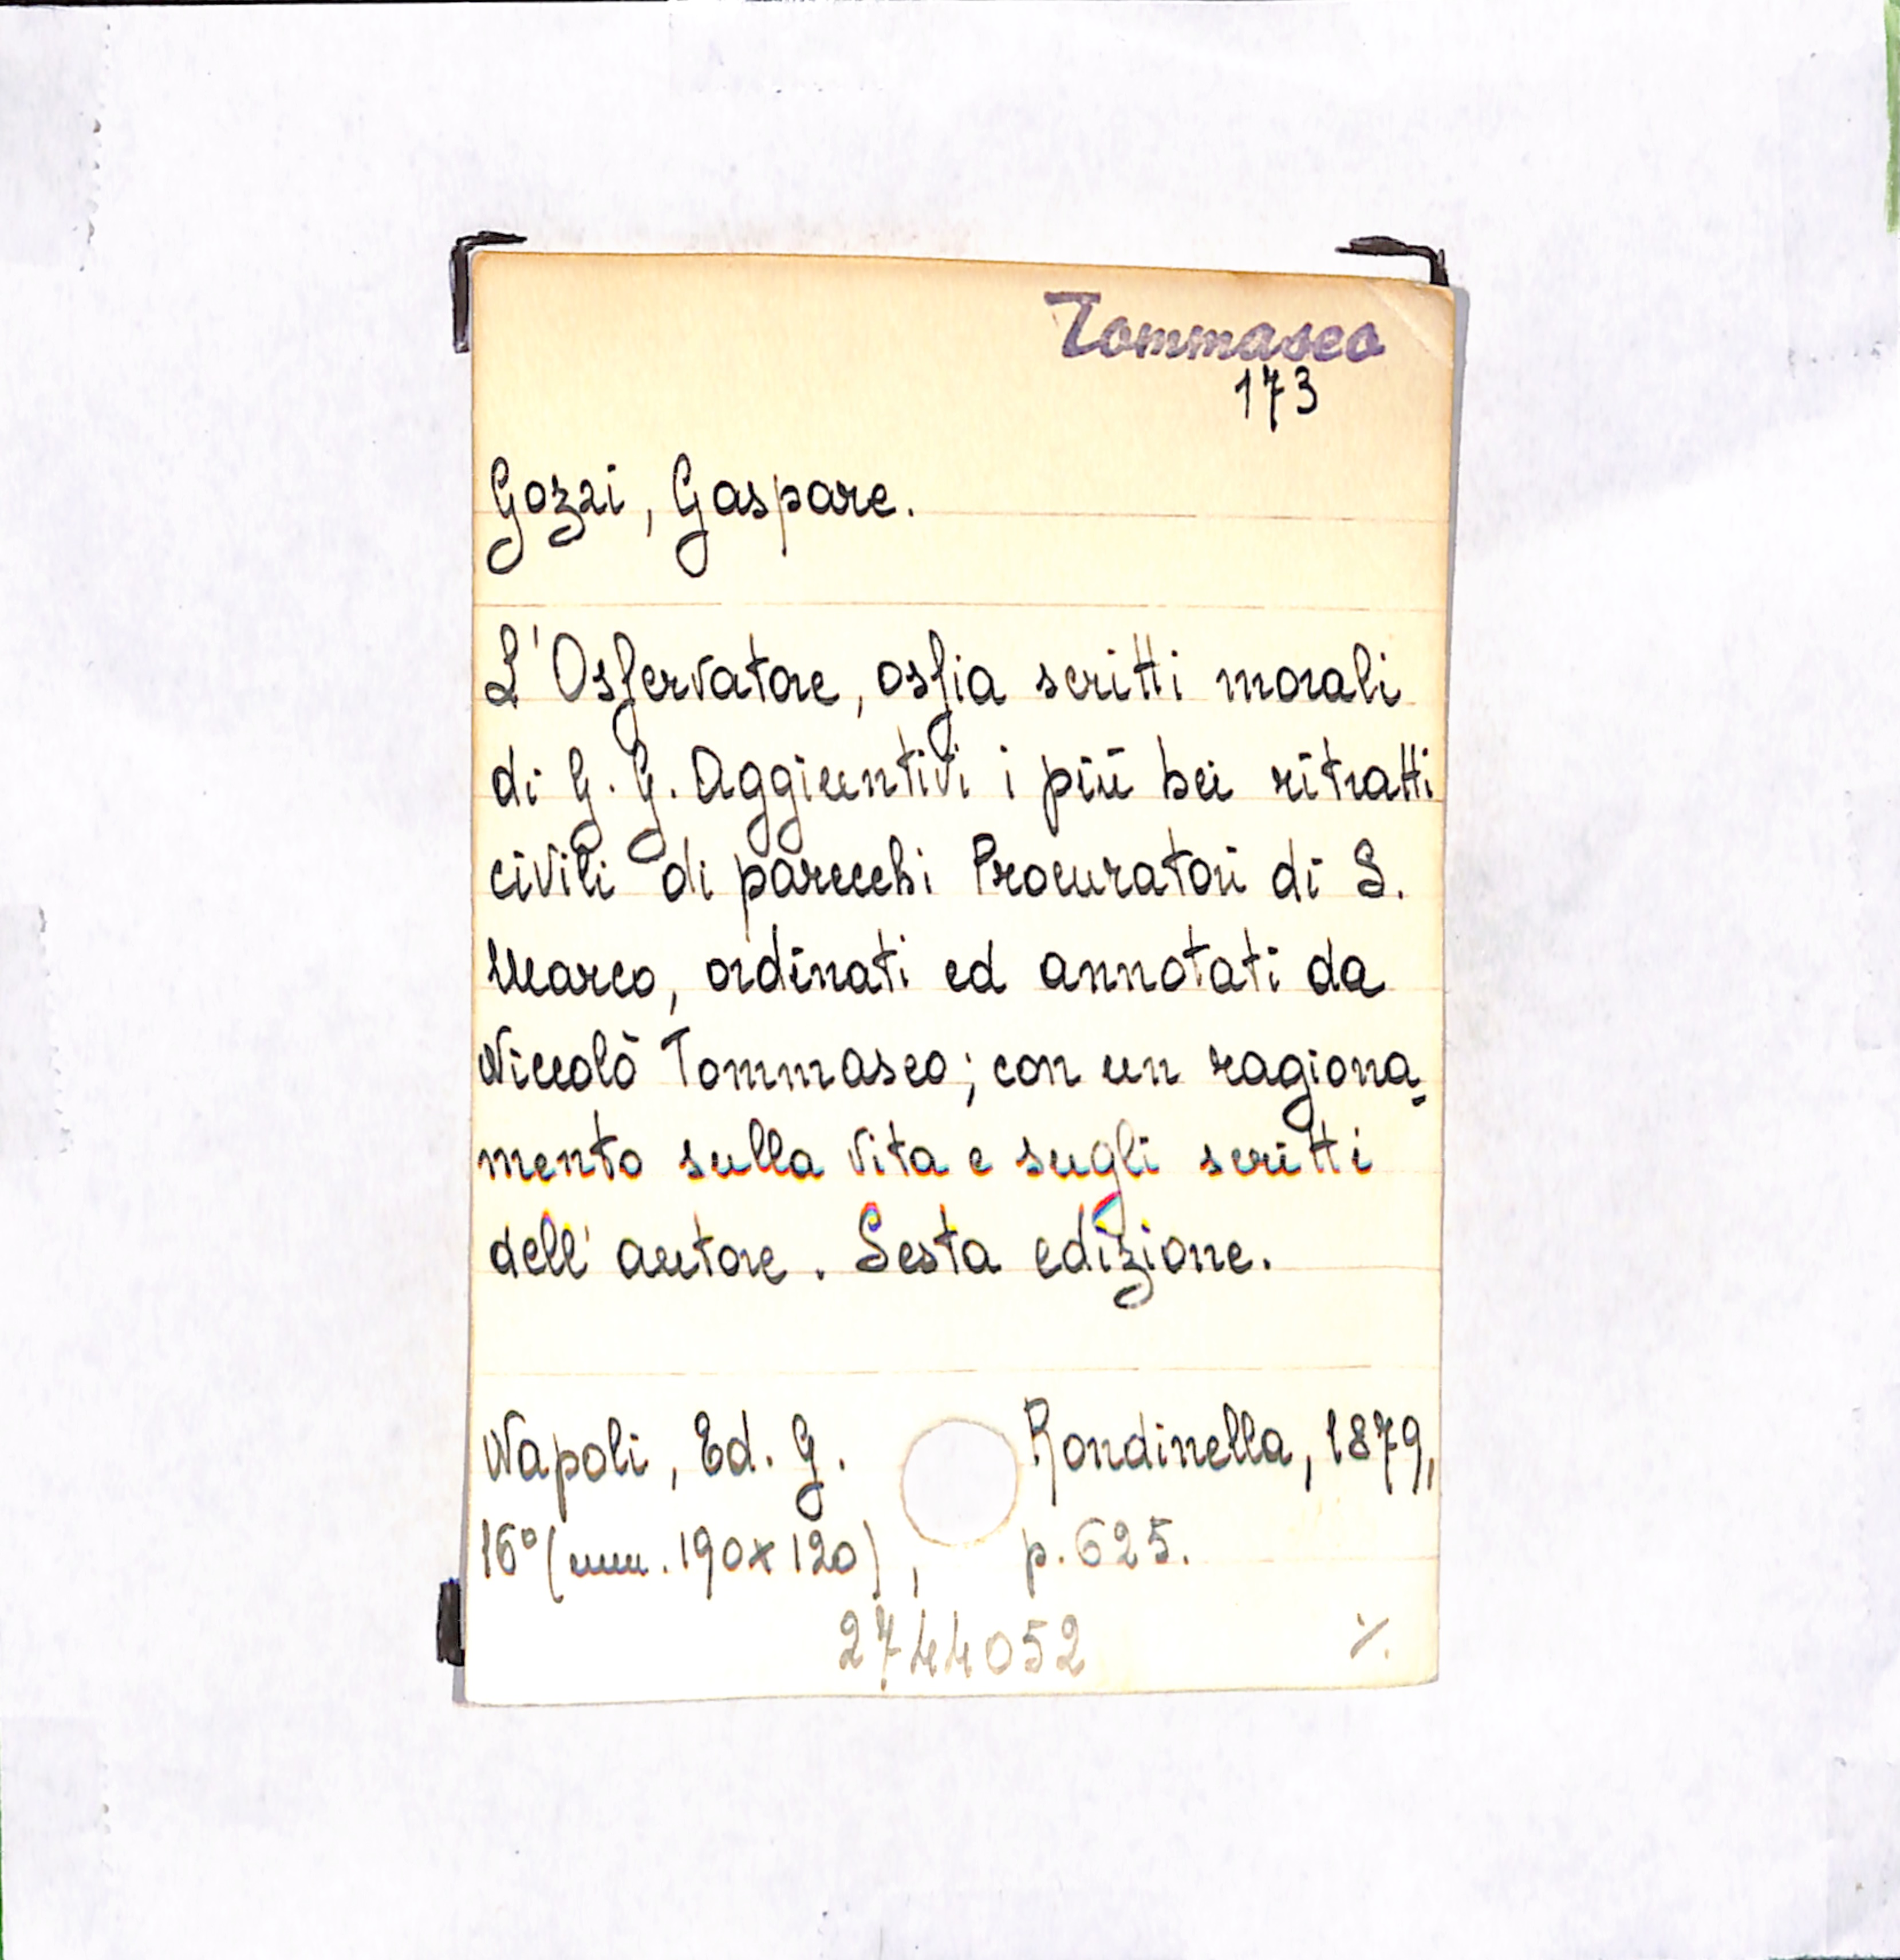 Tommaseo
173
Gozzi, Gaspare.
L'Osſervatore, osſia scritti morali
di G. G. Aggiuntivi i più bei ritratti
civili di parecchi Procuratori di S.
Marco, ordinati ed annotati da
Niccolò Tommaseo; con un ragiona-
mento sulla vita e sugli scritti
dell'autore. Sesta edizione.
Napoli, Ed. G. Rondinella, 1879,
16° (mm. 190x120), p. 625.
2744052 ./.